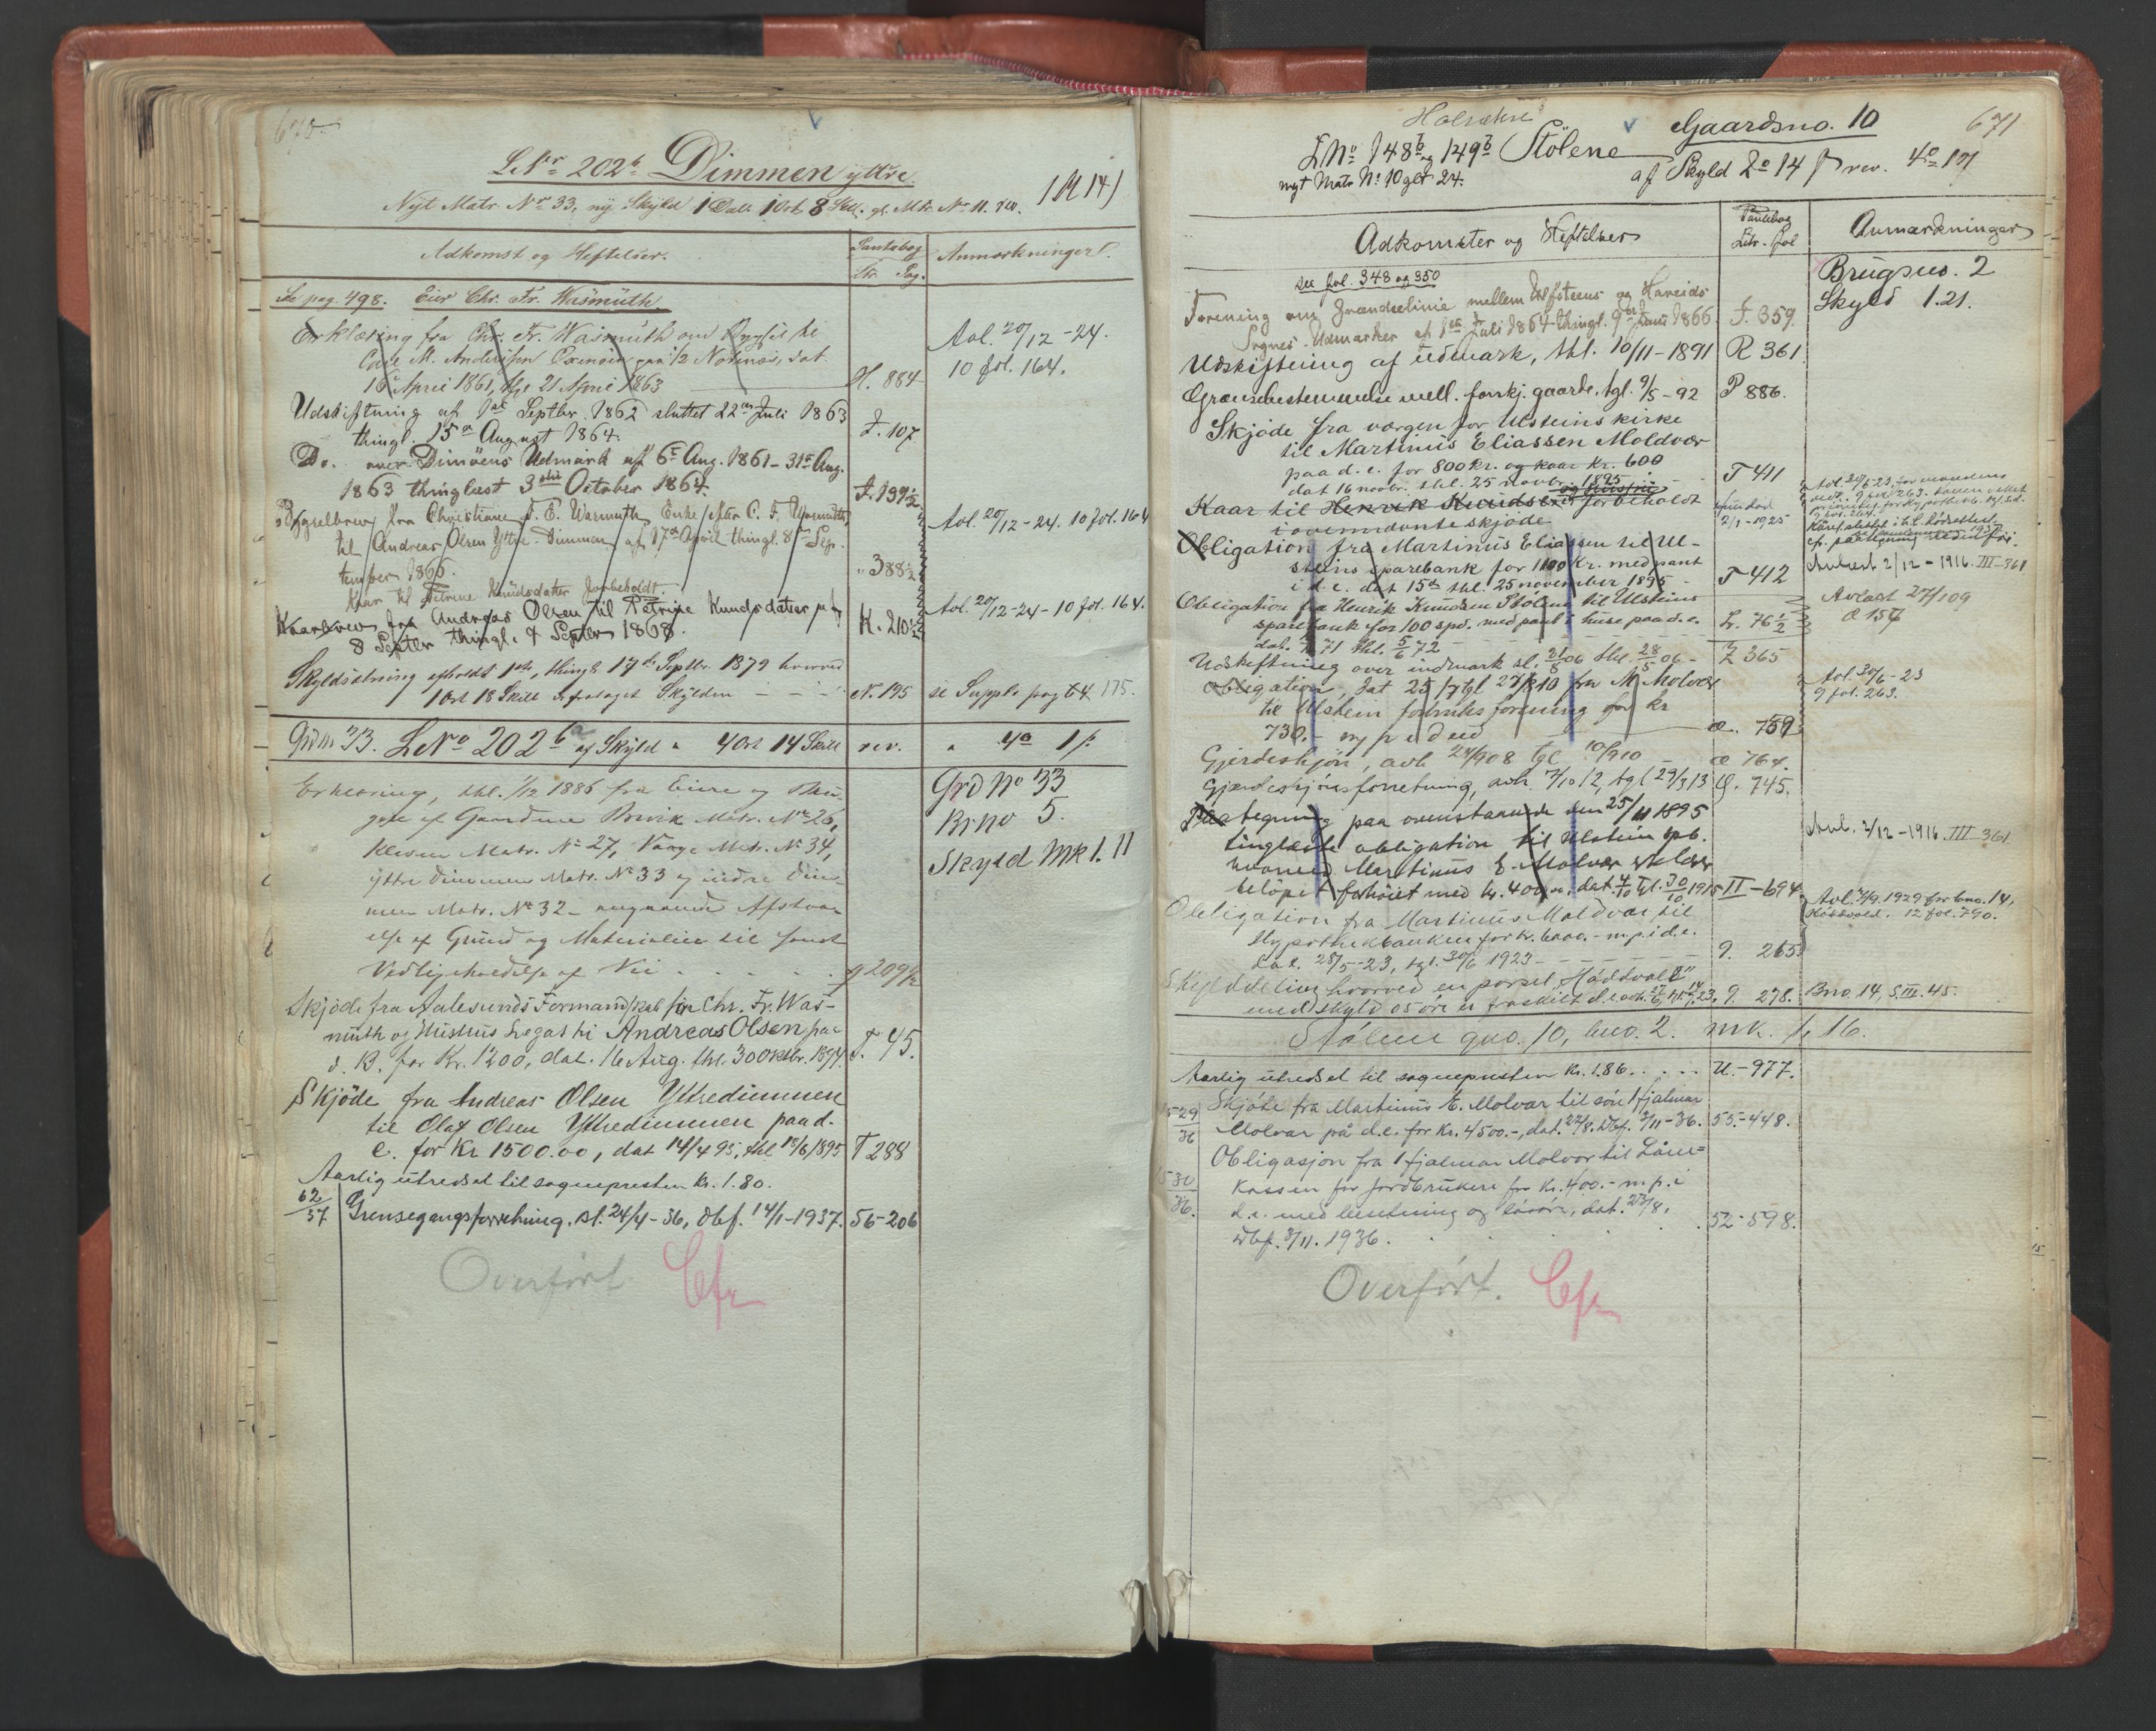 670
LNr 202b Dimmen yttre
Nyt Matr. Nr 33, ny Skyld 1 Dal. 1 Ort 8 Skill. gl. Mtr. No 11. rev.
Adkomst og Heftelser.
Pantebog
Litr. Pag.
Anmærkninger.
Se pag. 498. Eier Chr. Fr. Wasmuth.
Erklæring fra Chr. Fr. Wasmuth om Bygsel til
M. Andersen paa 1/2 Notenæs, dat.
16de April 1861, thgl 21 April 1863
H. 884
Avl. 20/12-24.
10 fol. 164.
Udskiftning af 1ste Septbr. 1862 sluttet 22de Juli 1863
thingl. 15de August 1864.
I. 107
Do. over Dimöens Udmark af 6te Aug. 1861-31te Aug.
1863 thinglæst 3die October 1864.
I. 139 1/2
Bygselbrev fra Christiane F. E. Warmuth, Enke efter C. F. Wasmuth,
til Andreas Olsen Yttre-Dimmen af 17de April thingl. 8de Sep-
tember 1865.
" 388 1/2
Avl. 20/12-24. 10 fol. 164
Kaar til Petrine Knudsdatter forbeholdt.
Kaarbrev fra Andreas Olsen til Petrine Knudsdatter af
8 Septbr thingl. 9 Septbr 1868.
K. 210 1/2
Avl. 20/12-24-10 fol. 164.
Skyldsætning afholdt 1ste, thingl. 17de Septbr. 1879 hvorved
1 Ort 18 Skill er frataget Skylden
N. 195
se Suppl. pag 64 175.
Grdn. 33. LNo 202b af Skyld " 4 Ort 14 Skill rev. " 4o 1 s.
Erklæring, thl. 1/12 1886 fra Eiere og Bru-
gere af Gaardene Brevik Matr. No 26,
Kleven Matr. No 27, Vaage Matr. No 34,
yttre Dimmen Matr. No 33 og indre Dim-
men Matr. No 32 - angaaende Afstaa-
else af Grund og Materialier til samt
Vedligeholdelse af Vei
Q 209 1/2
Grd No 33
Br no 5.
Skyld Mk 1.11
Skjöde fra Aalesunds Formandskab for Chr. Fr. Was-
muth og Hustrus Legat til Andreas Olsen paa
d. B. for Kr. 1200, dat. 16 Aug. thl. 30 oktbr. 1894.
T. 45.
Skjöde fra Andreas Olsen Yttredimmen
til Olaf Olsen Yttredimmen paa d.
e. for Kr 1500.00, dat 14/4 95, thl 15/6 1895
T 288
Aarlig utredsel til sognepresten kr. 1.80.
62/37 Grensegangsforretning, sl. 24/4-36, dbf. 14/1-1937.
56-206
Overfört
671
Gaardsno. 10
LNo 148b og 149b Stölene
nyt Matr No 10 gl 24.
af Skyld 2o 14 s rev. 4o 17
Adkomster og Heftelser
Pantebog
Litr. Fol
Anmærkninger
see fol. 348 og 350
Brugsno. 2
Skyld 1.21.
Forening om Grændselinie mellem Ulfsteens og Hareids
Sognes Udmarker af 1ste Juli 1864 thingl. 9de Juni 1866
I. 359
Udskiftning af udmark, thl. 10/11-1891
R 361
Grænsebestemmelse mell. forskj. gaarde. tgl. 9/5-92
P 886.
Skjöde fra værgen for Ulsteins kirke
til Martinus Eliassen Moldvær
paa d. e. for 800 Kr. og kaar Kr. 600
dat 16 novbr. thl. 25 novbr. 1895
T 411
Kaar til Henrik Knudsen og hustru forbeholdt
i ovennævnte skjöde
Obligation fra Martinus Eliassen til Ul-
steins sparebank for 1100 Kr. med pant
i d. e. dat 15de thl. 25 november 1895
T 412
Avlæst 2/12-1916. III-361
Obligation fra Henrik Knudsen Stölene til Ulsteins
sparebank for 100 spd. med pant i huse paa d. e.
dat. 71 thl. 5/6 72
L. 76 1/2
Avlæst 27/109
Æ 154
Udskiftning over indmark sl. 21/8 06 thl. 28/5 06
Z 365
Obligation, dat 25/7 tgl 27/8 10 fra M Molvær
til Ulstein forbruksforening for kr
730.- m p i d ed
æ. 759
Avl. 30/6-23
9 fol. 263.
Gjerdeskjön, avh 24/908 tgl 10/910
æ 764.
Gjerdeskjönsforretning, avh. 7/10 12, tgl 29/3 13
Q. 745.
Paategning paa ovenstaaende den 25/11 1895
tinglæste obligation til Ulstein spb.
hvorved Martinus E. Molvær
belöpet forhöiet med kr. 400.00, dat. 4/10 tgl. 30/10 1915
II-694
Avl. 2/12-1916. III 361
Obligation fra Martinus Moldvær til
Hypothekbanken for kr. 6000.- m.p.i.d.e.
dat. 28/5-23, tgl. 30/6 1923
9. 265
Avl. 7/9.1929 for bno. 14,
Höddvoll. 12 fol. 790.
Skylddeling hvorved en parsel "Höddvoll"
med skyld 05 öre er fraskilt d.e.
9. 278.
Bno. 14, S.III. 45.
Stölene gno. 10, bno. 2. mk. 1,16.
Aarlig utredsel til sognepresten kr. 1.86.
U.-977.
1529/36 Skjöte fra Martinus E. Molvær til sön Hjalmar
Molvær på d.e. for kr. 4500.-, dat. 22/8. dbf. 3/11-36.
55-448.
1530/36. Obligasjon fra Hjalmar Molvær til Låne-
kassen for jordbrukere for kr. 400.- m.p.i
d.e. med besetning og lösöre, dat. 27/8,
dbf. 3/11. 1936.
52-598.
Overfört.